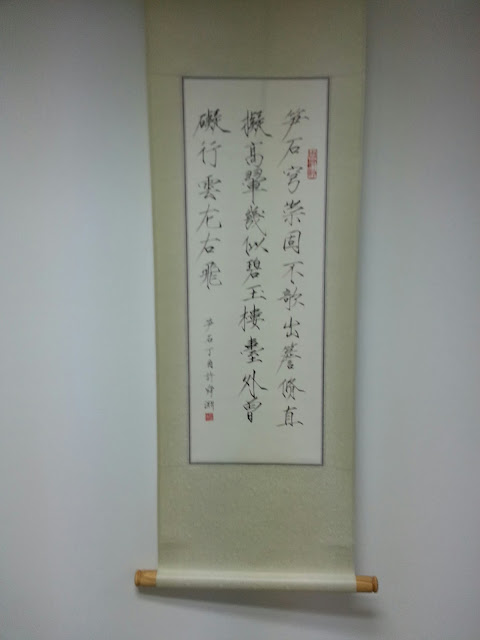 笋石穹崇固不欹出簷脩直
擬高翬幾似碧玉樓臺外曾
礙行雲左右飛
笋石丁酉許